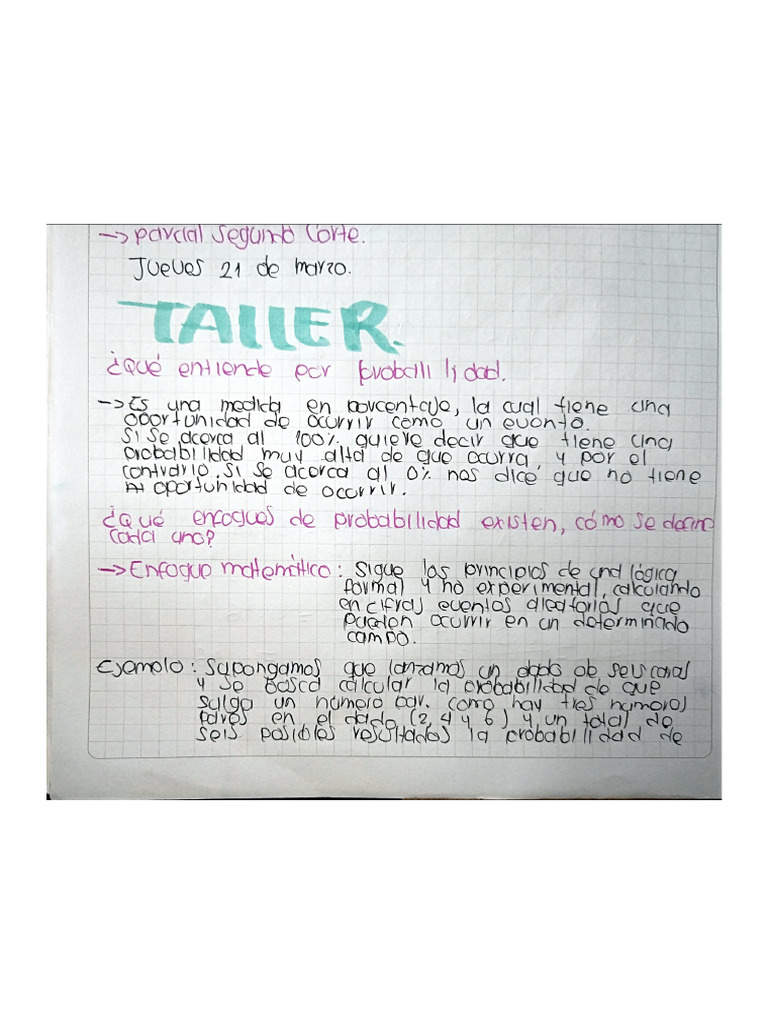 → parcial segundo corte.
Jueves 21 de marzo.
TALLER.
¿Qué entiende por probabilidad.
→ Es una medida en porcentaje, la cual tiene una
oportunidad de ocurrir como un evento.
Si se acerca al 100% quiere decir que tiene una
probabilidad muy alta de que ocurra, y por el
contrario, si se acerca al 0% nos dice que no tiene
oportunidad de ocurrir.
¿Qué enfoques de probabilidad existen, cómo se define
cada uno?
→ Enfoque matemático: Sigue los principios de una lógica
formal y no experimental, calculando
en cifras eventos aleatorios que
pueden ocurrir en un determinado
campo.
Ejemplo: Supongamos que lanzamos un dado de seis caras
y se busca calcular la probabilidad de que
salga un número par. Como hay tres números
pares en el dado (2, 4 y 6) y un total de
seis posibles resultados la probabilidad de